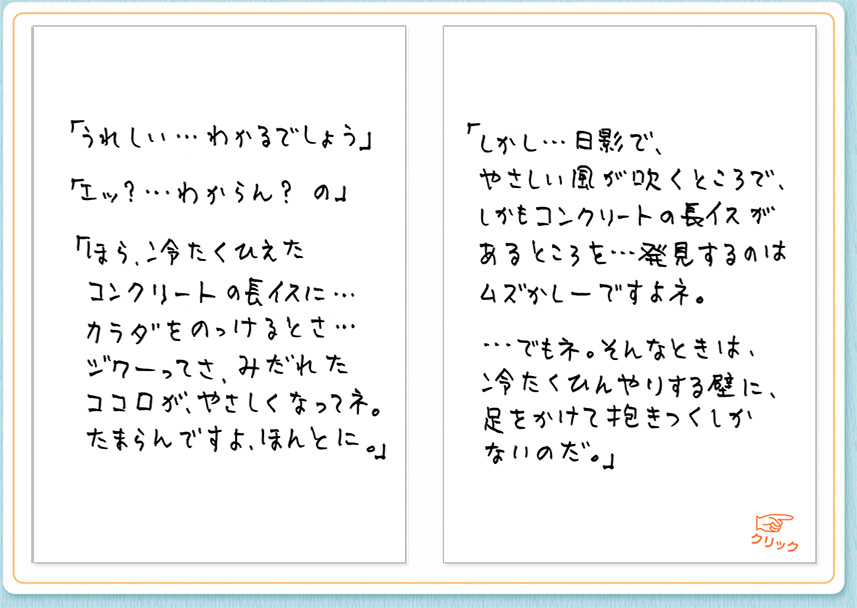 「うれしい…わかるでしょう」
「エッ?…わからん? の」
「ほら、冷たくひえた
コンクリートの長イスに…
カラダをのっけるとさ…
ジワーってさ、みだれた
ココロが、やさしくなってネ。
たまらんですよ、ほんとに。」
「しかし…日影で、
やさしい風が吹くところで、
しかもコンクリートの長イスが
あるところを…発見するのは
ムズかしーですよネ。
…でもネ。そんなときは、
冷たくひんやりする壁に、
足をかけて抱きつくしか
ないのだ。」
クリック